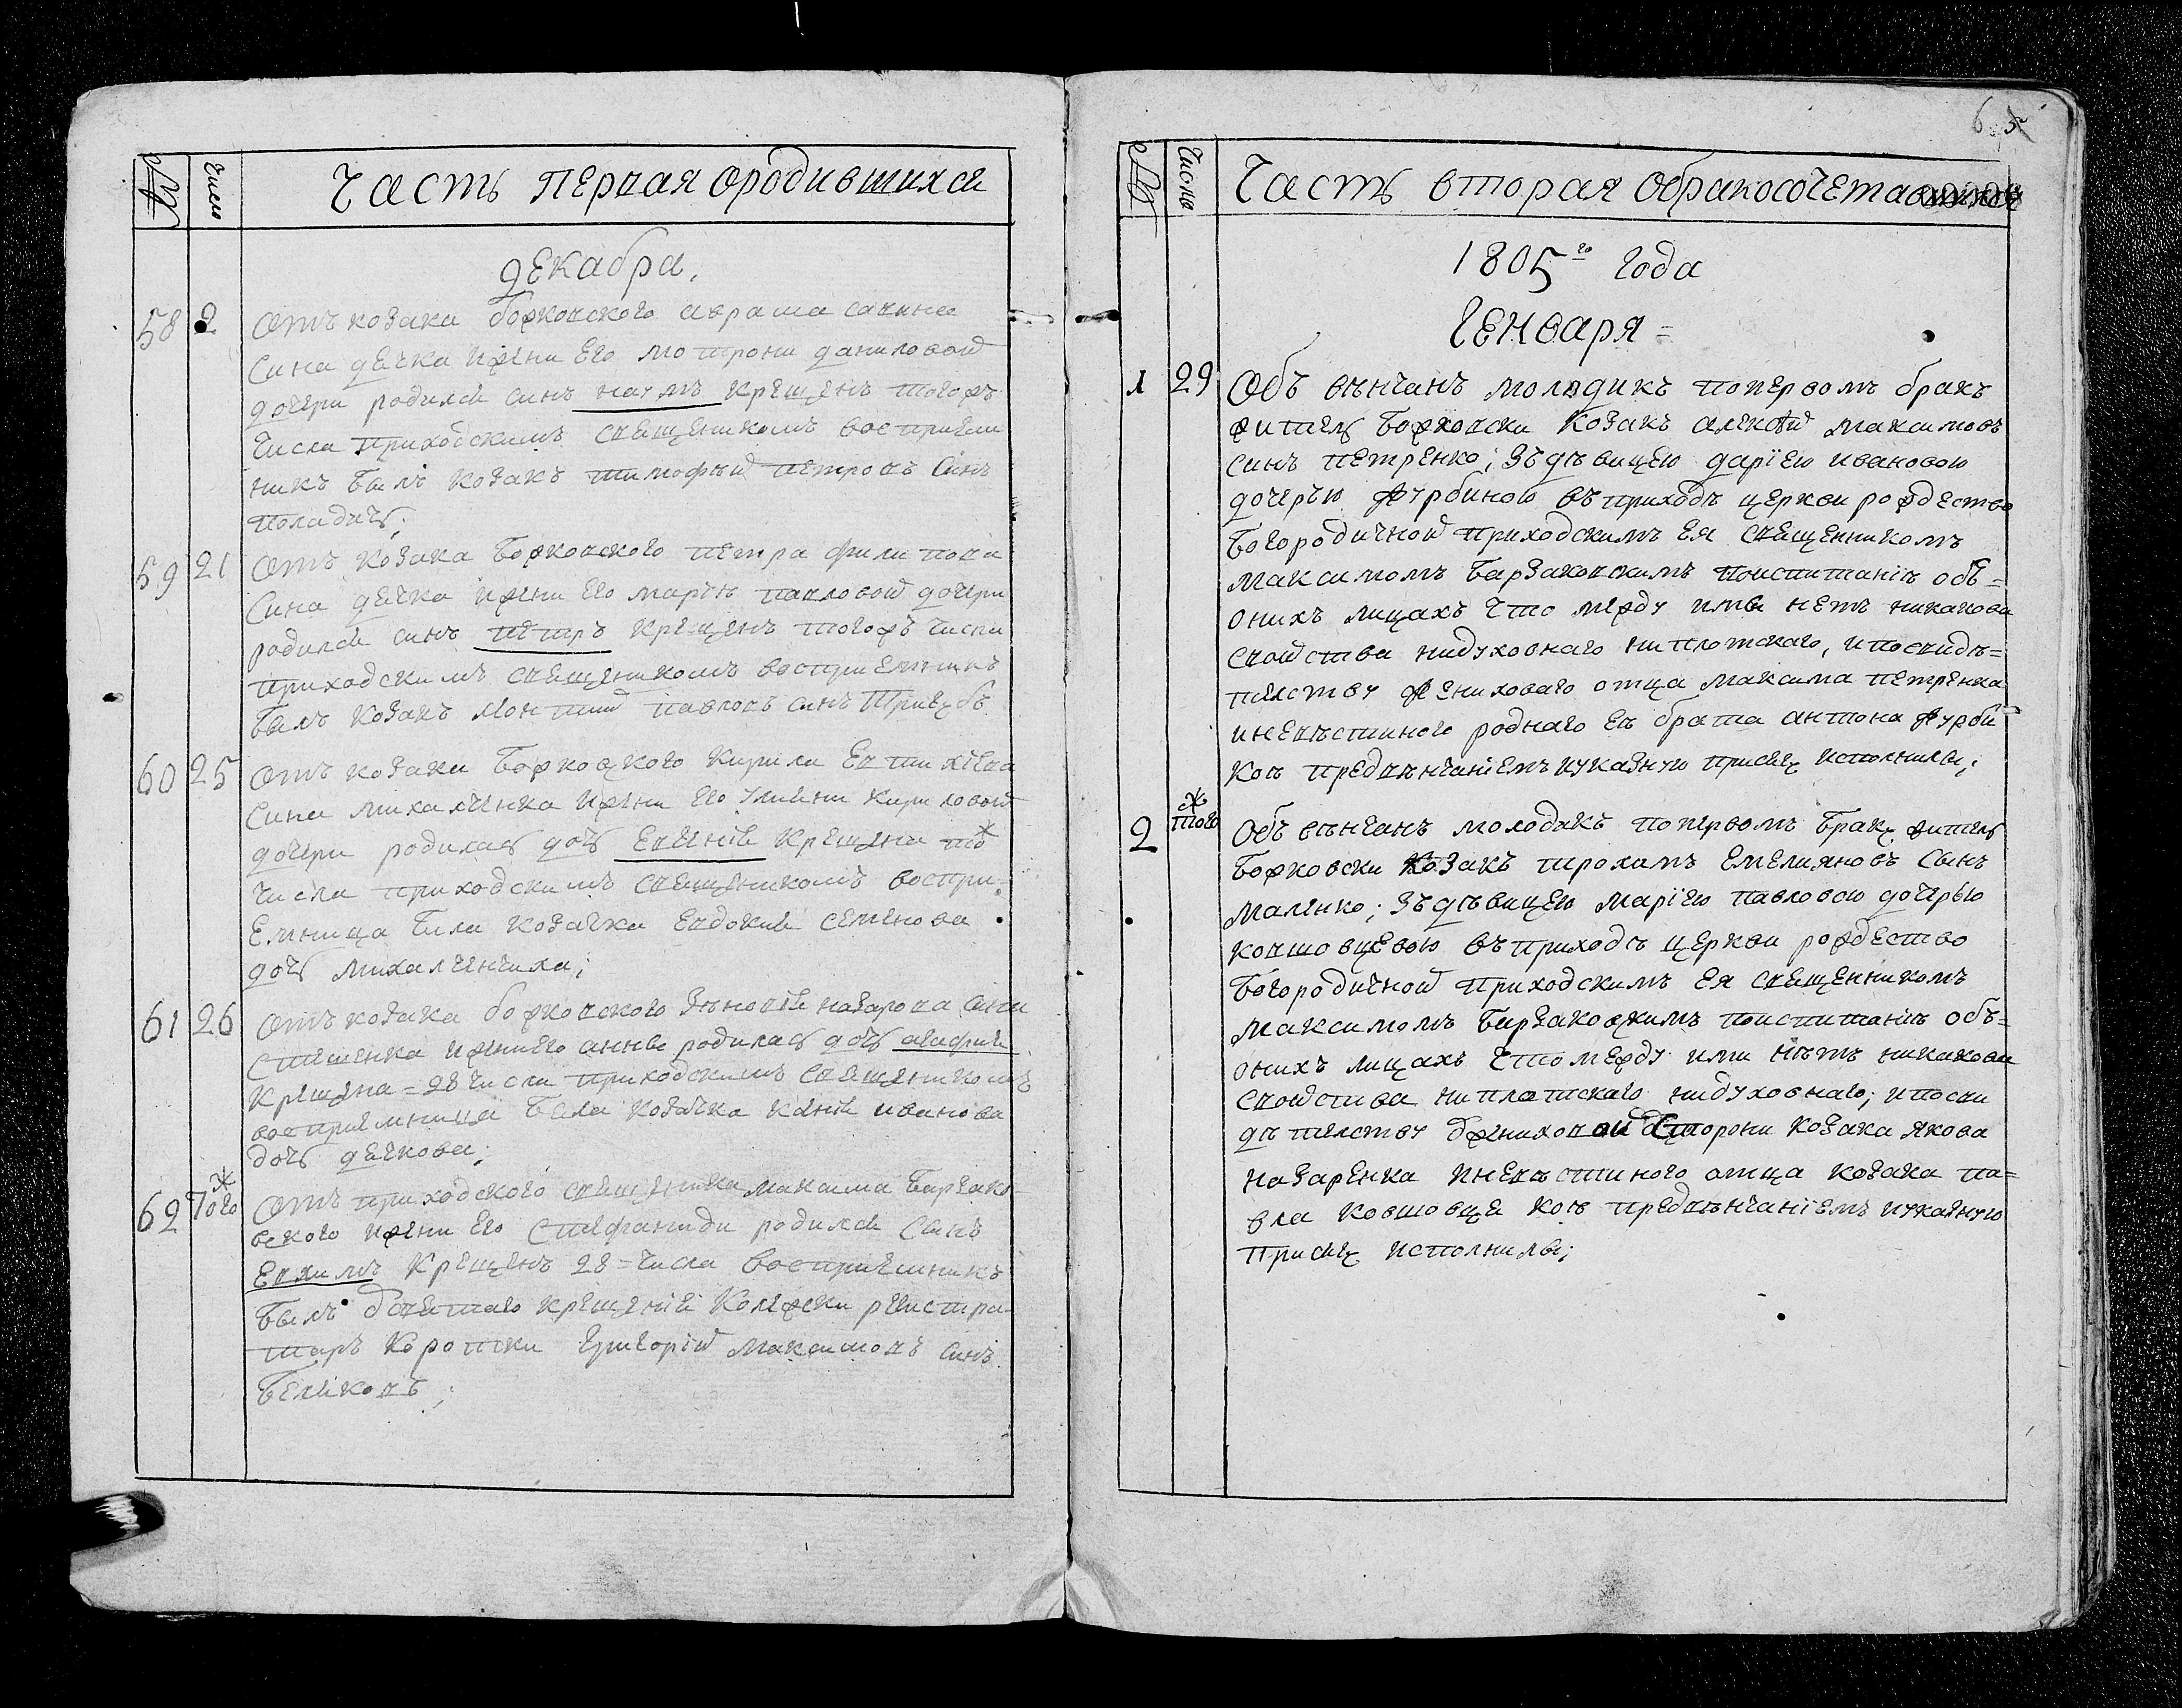 №
Число
Часть первая ородившихся
декабра.
58 2 Отъ козака боржковского авраама савина
сина дѣчка ижени его мотрони даниловой
дочери родился синъ наумъ крещенъ тогожъ
числа приходскимъ священикомъ восприем
никъ билъ козакъ тимофѣй петровъ синъ
поладичь;
59 21 Отъ козака Борковского петра филипова
сина дѣчка ижени его маріи павловой дочери
родился синъ петръ крещенъ тогожъ числа
приходскимъ священикомъ восприемникъ
былъ козакъ павловъ синъ
60 25 Отъ козака Борковского кирила евтихіева
сина михалченка ижени его улияни кириловой
дочери родилась дочь евгенія крещена того ж
числа приходскимъ священикомъ воспри-
емница била козачка евдокия семенова
дочь михалченчиха;
61 26 Отъ козака борковского зѣновія назарова сина
стешенка ижени его анны родилась дочь агафия
крещена = 28 числа приходскимъ священикомъ
восприемница была козачка ксенія иванова
дочь дѣчкова;
62 Того ж Отъ приходского священика максима Барзако
вского ижени его стефаниди родился сынъ
Евхимъ крещенъ 28 = числа восприемникъ
былъ святаго крещенія колежски регистра
таръ коротки григорій максимовъ синъ
Беликовъ;
6 5
№
Число
Часть вторая обракосочетав
1805го года
Генваря =
1 29 Объ вѣнчанъ молодикъ попервомъ бракъ
житель Борковски козакъ алексѣй максимовъ
синъ петренко; зъ дѣвицею даріею ивановою
дочерью журбиною въ приходѣ церкви рождество
богородичной приходскимъ ея священникомъ
максимомъ Барзаковскимъ поиспитаніи объ=
онихъ лицахъ что между ими нетъ никакова
свойства нидуховнаго ниплотскаго, и посвидѣ=
телству жениховаго отца максима петренка
иневѣстиного роднаго ея брата антона журби
кои предвѣнчаніемъ иуказную присягу исполнили;
2 того ж Объ вѣнчанъ молодикъ попервомъ браку житель
Борковски козакъ трохимъ емелияновъ сынъ
маленко; зъ дѣвицею маріею павловою дочерью
ковшовцевою въ приходѣ церкви рождество
богородичной приходскимъ ея священникомъ
максимомъ Барзаковскимъ поиспитаніи объ=
онихъ лицахъ что между ими нѣтъ никакова
свойства ниплотскаго нидуховнаго; и посви
дѣтелству жениховой сторони козака якова
назаренка иневѣстиного отца козака па=
вла ковшовця кои предвѣнчаніемъ иуказную
присягу исполнили;